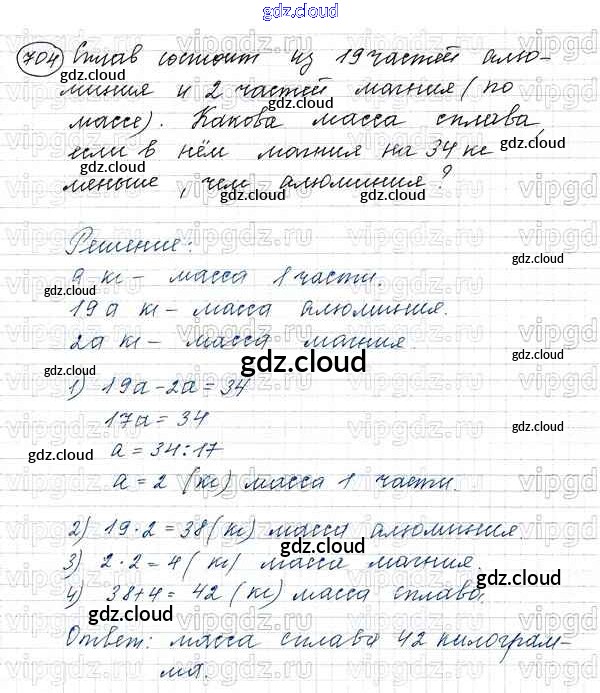 gdz.cloud
704 Сплав состоит из 19 частей алю-
миния и 2 частей магния (по
массе). Какова масса сплава,
если в нём магния на 34 кг
меньше, чем алюминия?
Решение:
а кг – масса 1 части.
19а кг – масса алюминия.
2а кг – масса магния.
1) 19а-2а=34
17а=34
а=34:17
а=2 (кг) масса 1 части.
2) 19·2=38 (кг) масса алюминия.
3) 2·2=4 (кг) масса магния.
4) 38+4=42 (кг) масса сплава.
Ответ: масса сплава 42 килограм-
ма.